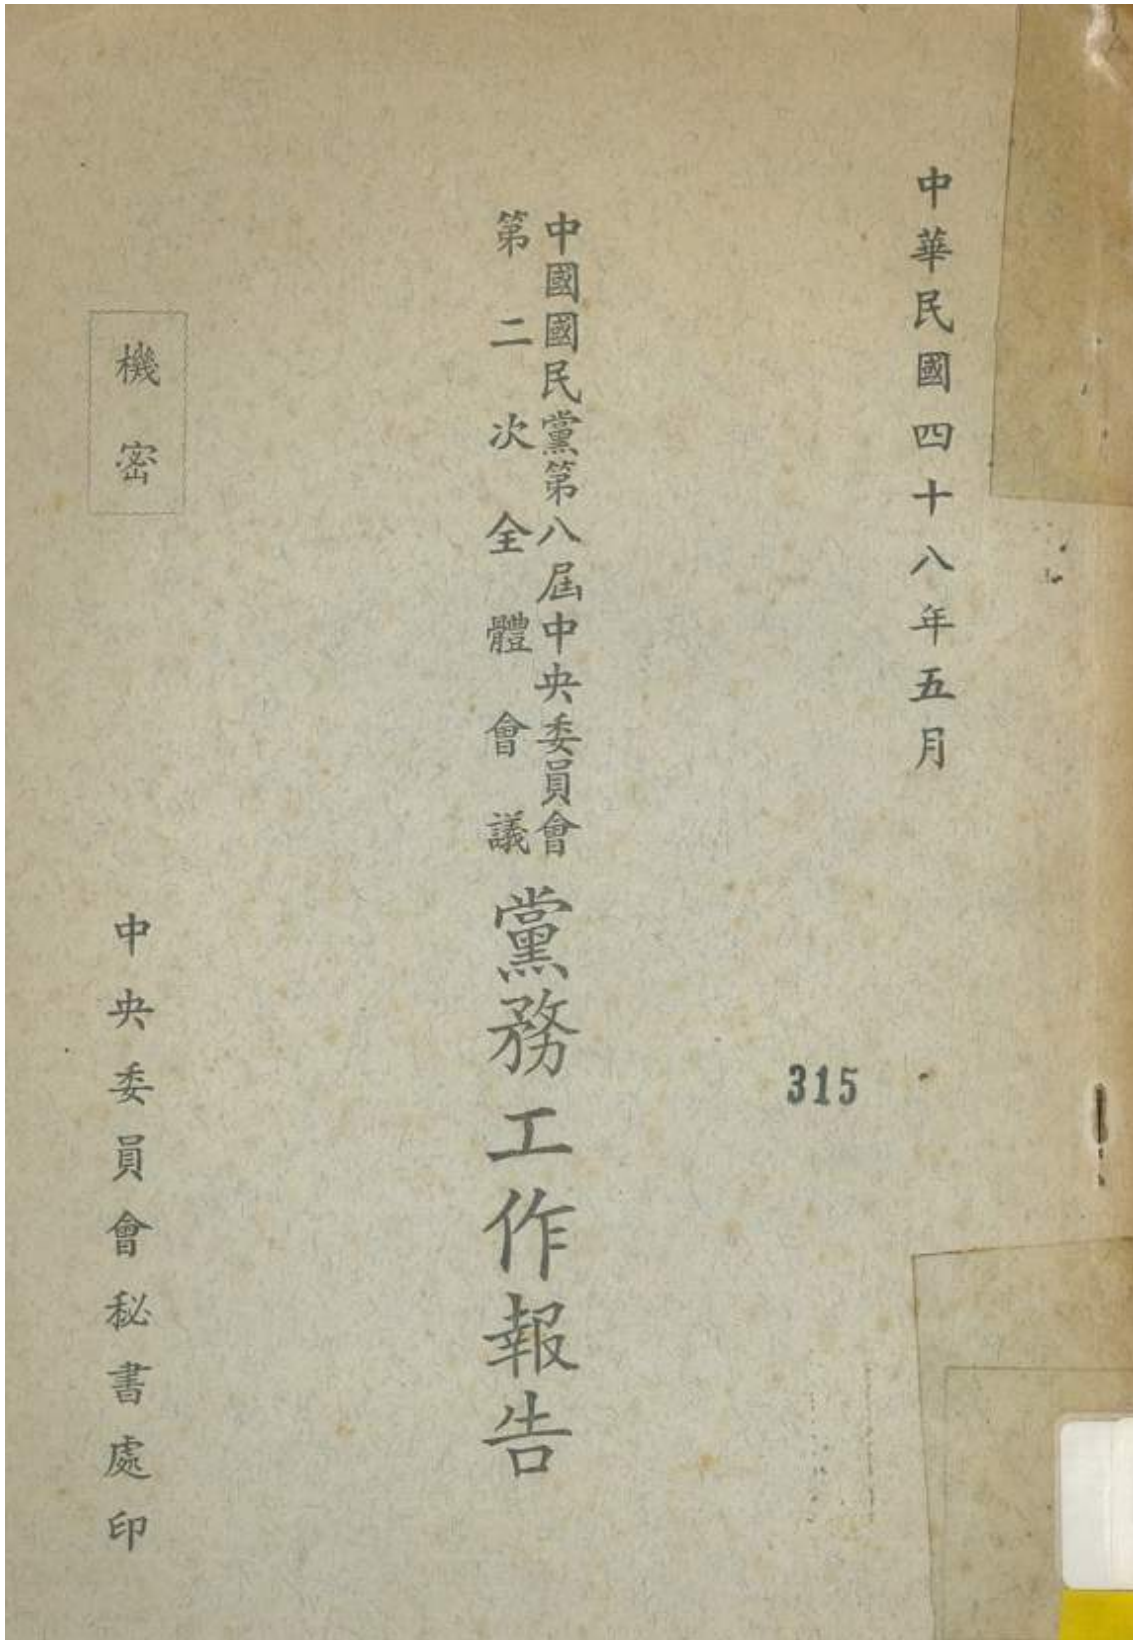 中華民國四十八年五月
中國國民黨第八屆中央委員會
第二次全體會議
黨務工作報告
315
機密
中央委員會秘書處印